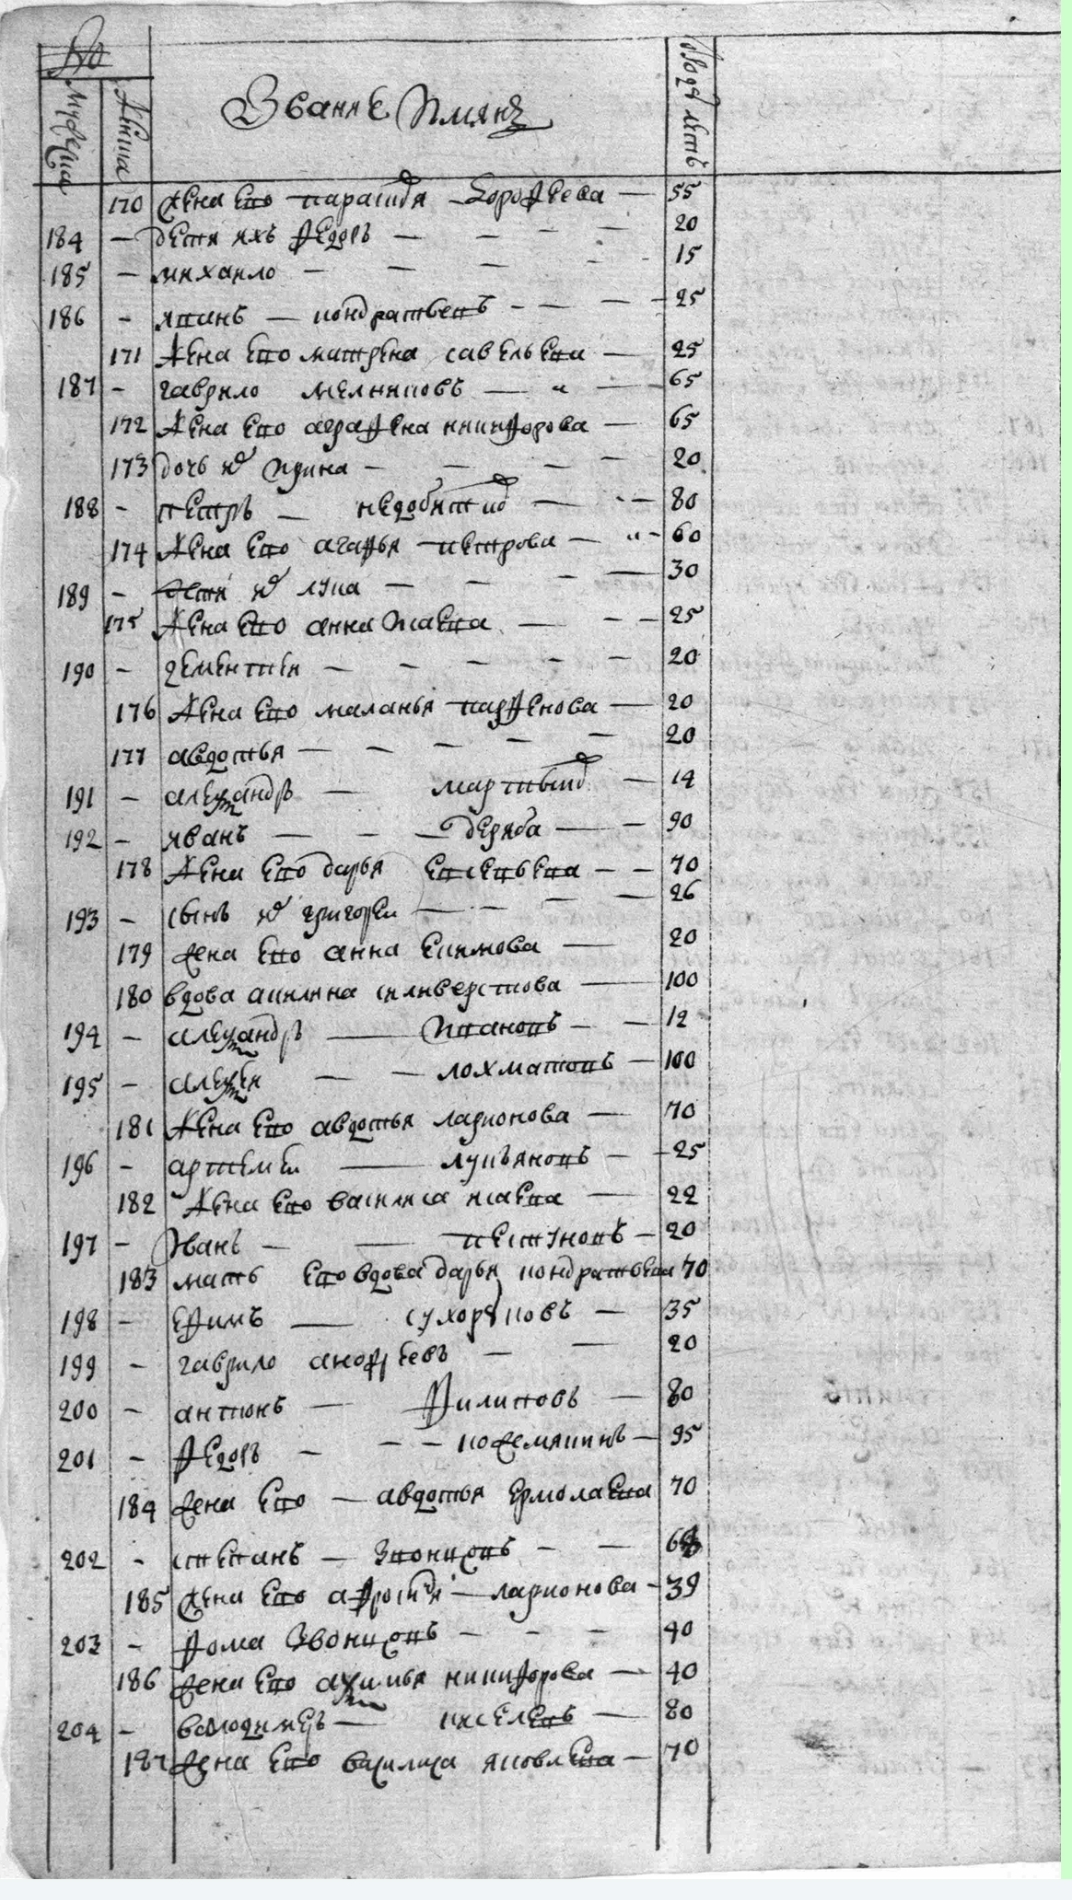 №
мужска
женска
Званiе Имянъ
сколко лѣтъ
170 жена ево парасковя дорофѣева — 55
184 — дети ихъ федоръ — — — — 20
185 — михаило — — — — 15
186 — якимъ — кондратьевъ — — — 25
171 жена ево матрена савельева — 25
187 — гаврило мелниковъ — 65
172 жена ево аграфена никифорова — 65
173 дочь ирина — — — — 20
188 — петръ — — — 80
174 жена ево агафья петрова — 60
189 — лука — — — — 30
175 жена ево анна — — — 25
190 — дементеи — — — — — 20
176 жена ево маланья парфенова — 20
177 авдотья — — — — — 20
191 — александръ — — 14
192 — иванъ — — — деряба — — 90
178 жена ево дарья — — 70
193 — сынъ григореи — — — — 26
179 жена ево анна екимова — 20
180 вдова акилина силиверстова — 100
194 — александръ — — — 12
195 — алексеи — — лохматовъ — 100
181 жена ево авдотья ларионова — 70
196 — артемеи — лукьяновъ — — 25
182 жена ево василиса исаева — 22
197 — Иванъ — — — 20
183 мать ево вдова дарья кондратьева 70
198 — ефимъ — сухоруковъ — 35
199 — гаврило андреевъ — — 20
200 — антонъ — филиповъ — 80
201 — федоръ — — — кожемякинъ — 95
184 жена ево — авдотья ермолаева 70
202 — степанъ — звонцовъ — —
185 жена ево афросиня — ларионова — 39
203 — фома Звонцовъ — — — 40
186 жена ево акулина никифорова — 40
204 — володимеръ — киселевъ — 80
187 жена ево василиса яковлева — 70